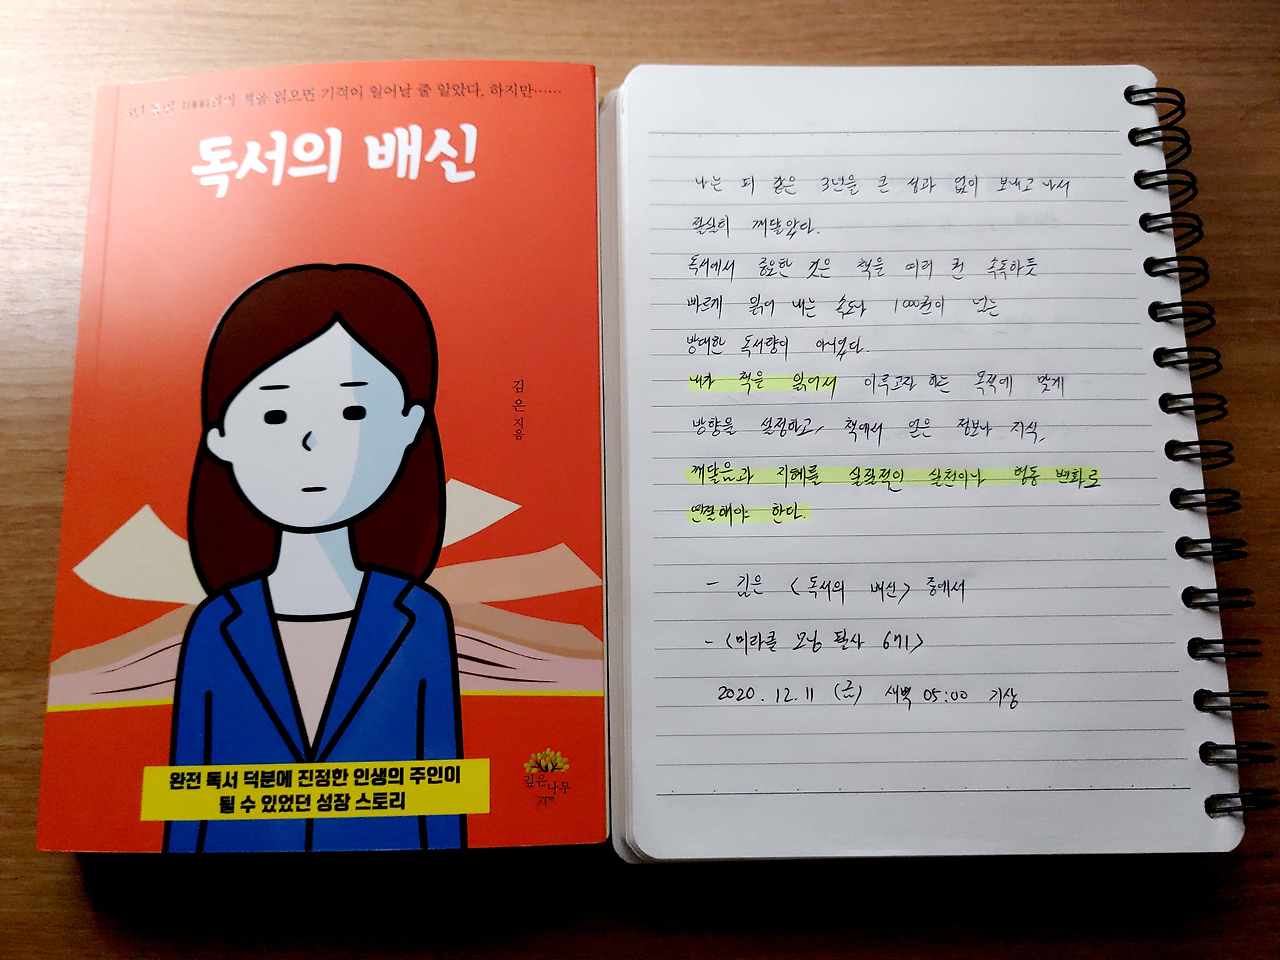 책을 읽으면 기적이 일어날 줄 알았다. 하지만……
독서의 배신
김은 지음
완전 독서 덕분에 진정한 인생의 주인이
될 수 있었던 성장 스토리
깊은나무
나는 피 같은 3년을 큰 성과 없이 보내고 나서
절실히 깨달았다.
독서에서 중요한 것은 책을 여러 권 속독하듯
빠르게 읽어 내는 속도나 1000권이 넘는
방대한 독서량이 아니었다.
내가 책을 읽어서 이루고자 하는 목적에 맞게
방향을 설정하고, 책에서 얻은 정보나 지식,
깨달음과 지혜를 실질적인 실천이나 행동 변화로
연결해야 한다.
- 김은 <독서의 배신> 중에서
- <미라클 모닝 필사 671>
2020. 12. 11 (금) 새벽 05:00 기상